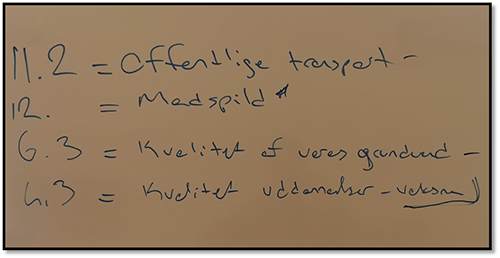 11.2 = Offentlige transport -
12. = Madspild *
6.3 = Kvalitet af vores grundvand -
4.3 = Kvalitet uddannelser - voksne